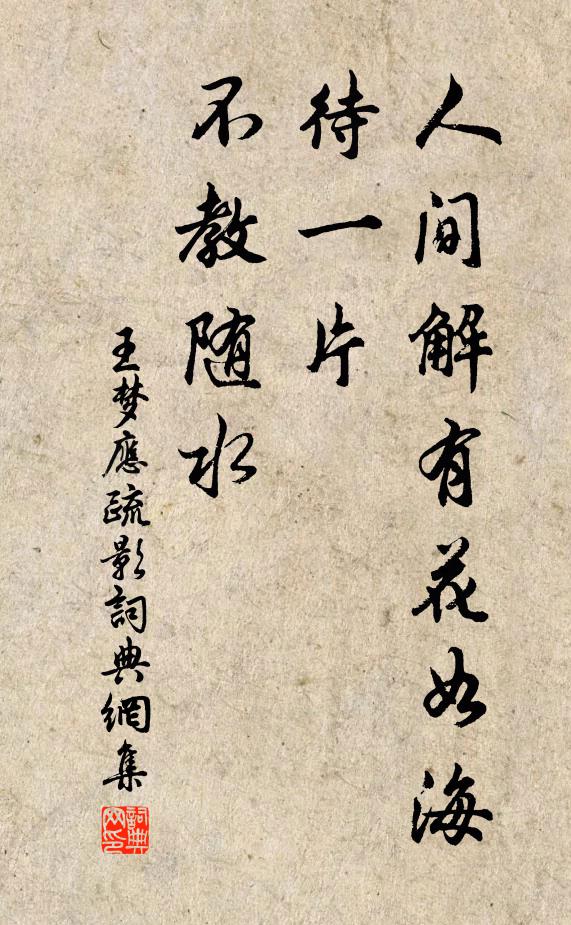 人间解有花如海
待一片
不教随水
王梦應疏影詞典網集
詞典网印